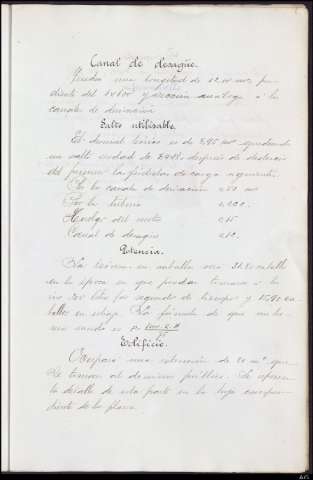 Canal de desagüe.
Tendrá una longitud de 12,00 mts. pen
diente del y sección análoga a la
canal de derivación.
Salto utilizable.
El desnivel teórico es de 8,95 mts quedando
un salto de después de deducir
del primero las pérdidas de carga siguientes:
En la canal de derivación
Por la tubería
Huelgo del motor 0,15
Canal de desagüe 0,10
Potencia.
La teórica en caballos será 31,20 caballos
en la época en que puedan tomarse a la
ría 300 litros por segundo de tiempo y 15,91 ca
ballos en estiaje. La fórmula de que nos he
mos usado es P.
Edificio.
Ocupará una extensión de 20 m² que
se toman al dominio público. Se expresa
la detalle de esta parte en la hoja correspon
diente de los planos.